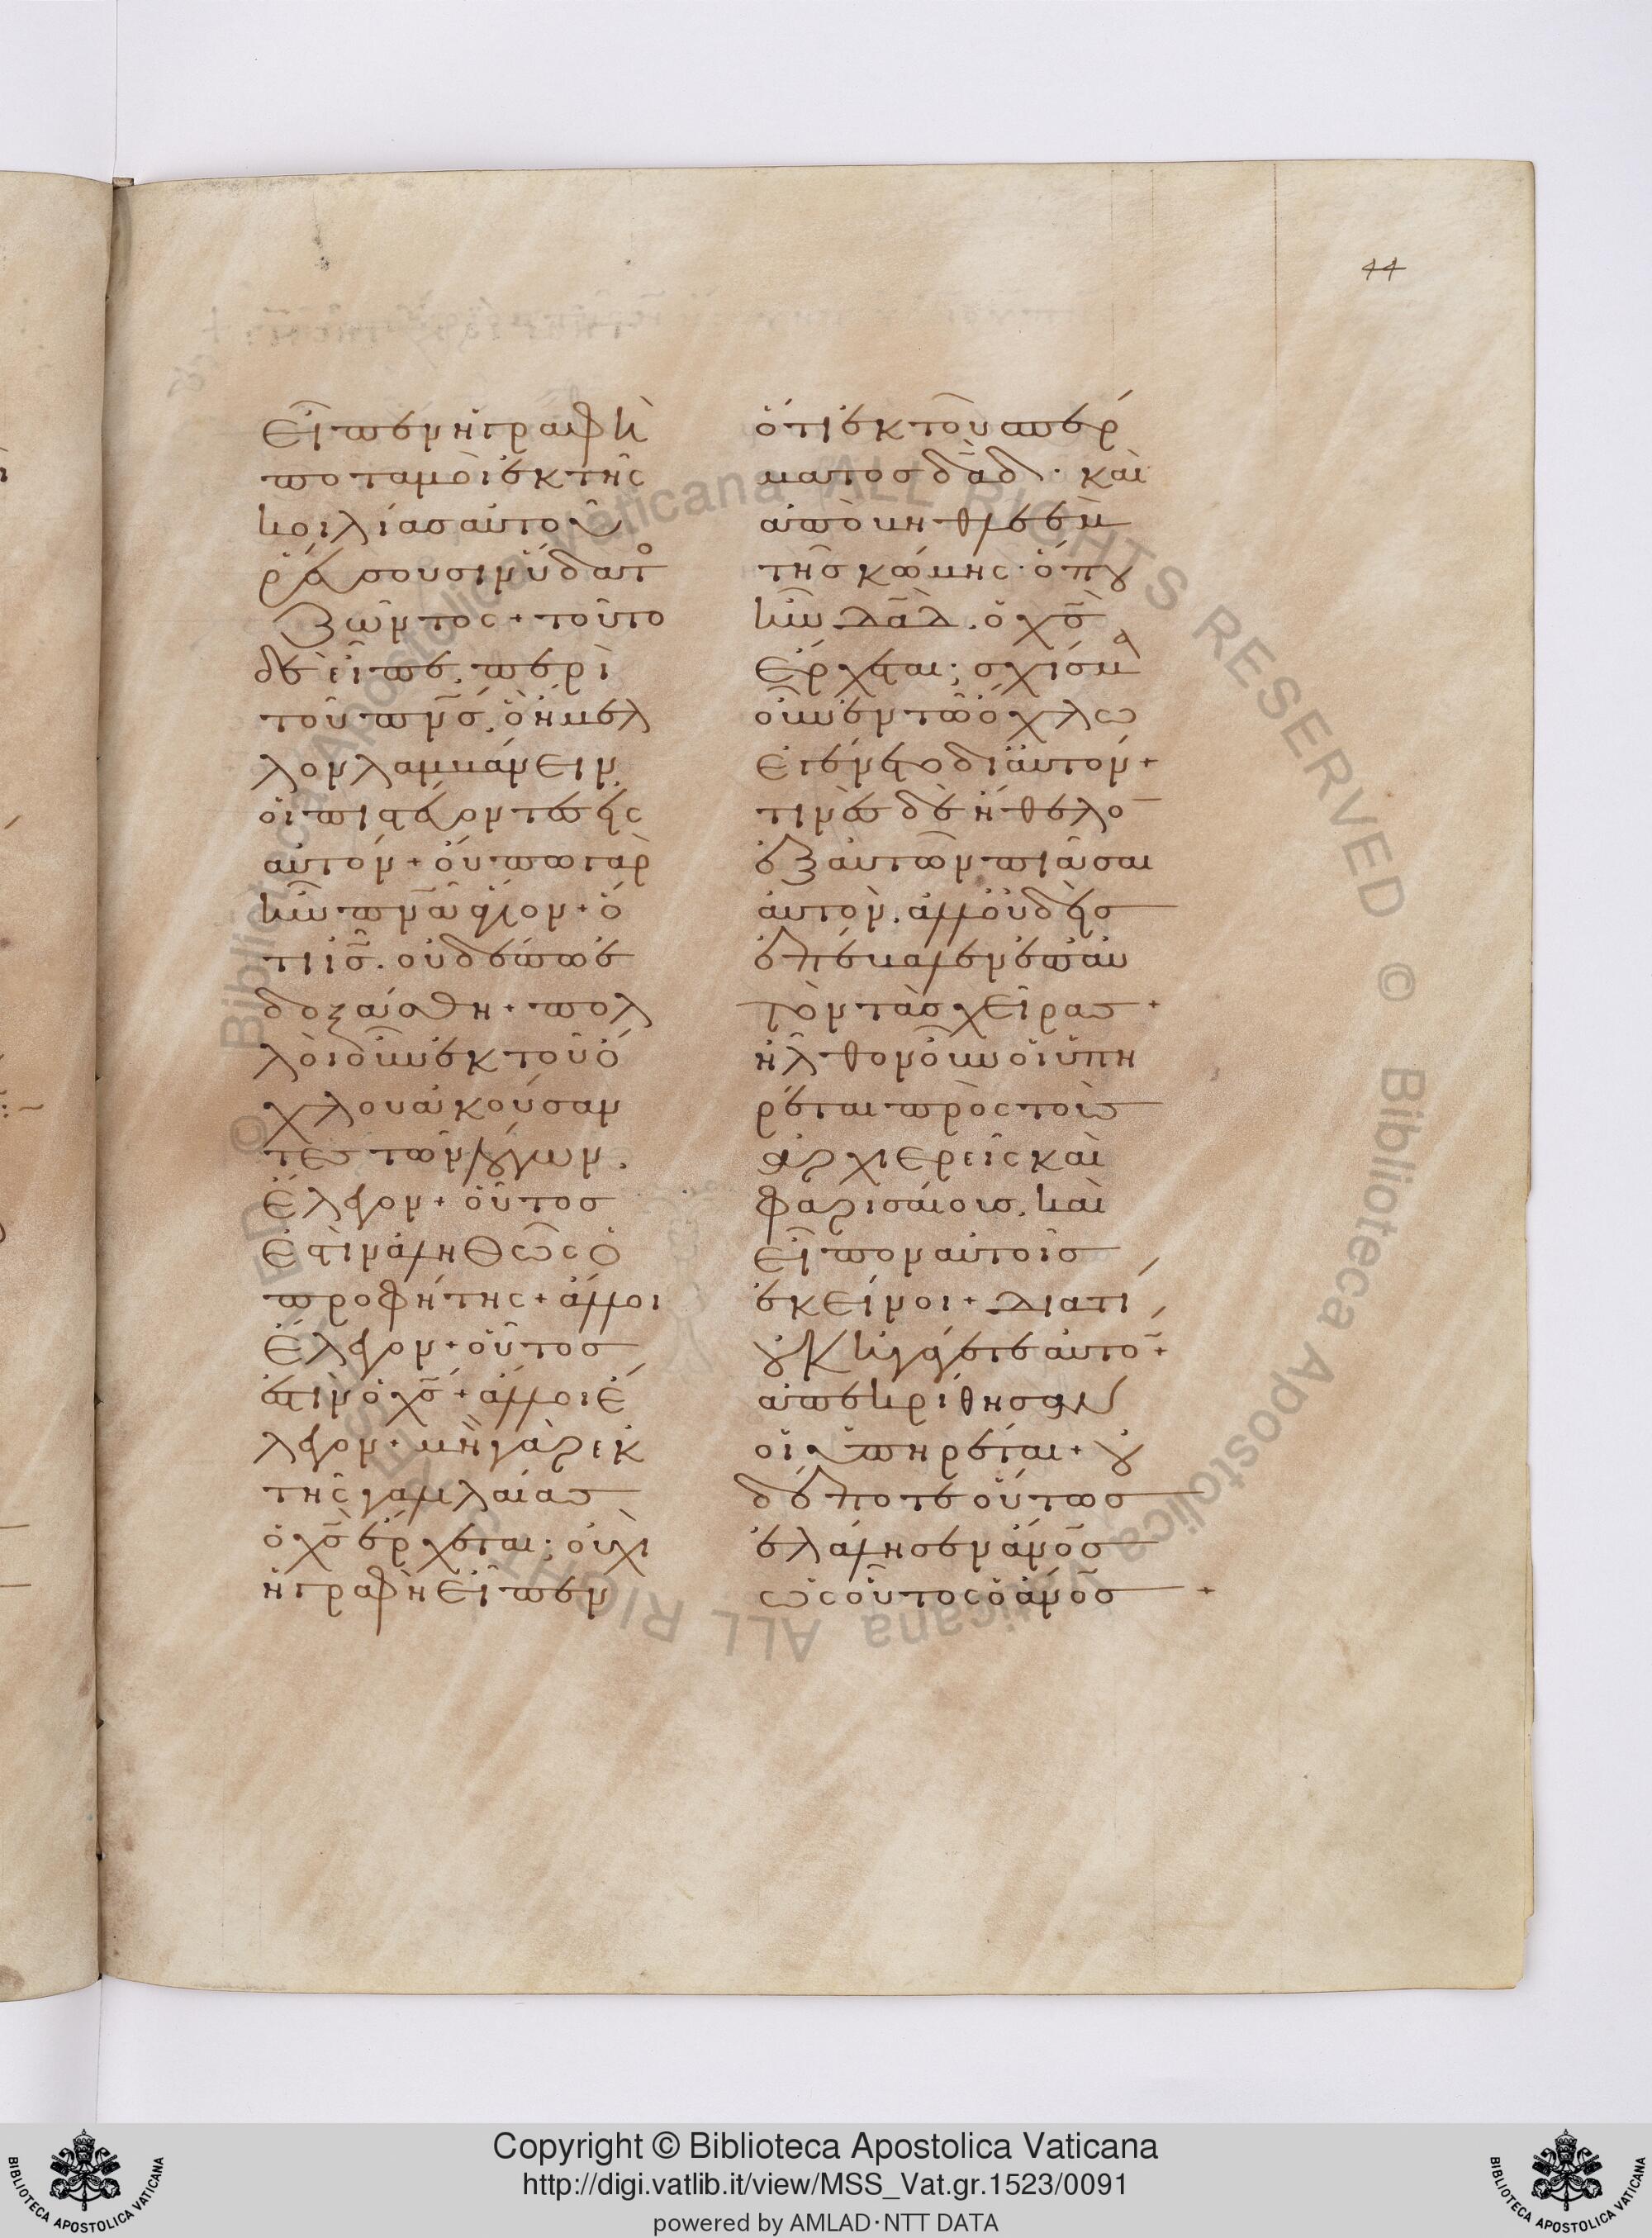 44
εἶπεν ἡ γραφὴ
ποταμοὶ ἐκ τῆς
κοιλίας αὐτοῦ
ῥεύσουσιν ὕδατο
ζῶντος + τοῦτο
δὲ εἶπε. περὶ
τοῦ πν̅σ̅. ὃ ἤμελ
λον λαμβάνειν
οἱ πιστεύοντες εἰς
αὐτόν + οὔπω γὰρ
ἦν πν̅α̅ ἅγιον + ὅ
τι ι̅σ̅. οὐδέπω ἐ
δοξάσθη + πολ
λοὶ οὖν ἐκ τοῦ ὄ
χλου ἀκούσαν
τες τῶν λόγων.
ἔλεγον + οὗτός
ἐστιν ἀληθῶς ὁ
προφήτης + ἄλλοι
ἔλεγον + οὗτός
ἐστιν ὁ χ̅σ̅ + ἄλλοι ἔ
λεγον + μὴ γὰρ ἐκ
τῆς γαλιλαίας
ὁ χ̅σ̅ ἔρχεται; οὐχὶ
ἡ γραφὴ εἶπεν
ὅτι ἐκ τοῦ σπέρ
ματος δ̅α̅δ̅. καὶ
ἀπὸ βηθλεὲμ
τῆς κώμης. ὅπου
ἦν δ̅α̅δ̅. ὁ χ̅σ̅
ἔρχεται; σχίσμα
οὖν ἐν τῶ ὄχλω
ἐγένετο δι' αὐτόν +
τινὲς δὲ ἤθελο̅
ἐξ αὐτῶν πιάσαι
αὐτόν. ἀλλ' οὐδεὶς
ἐπέβαλεν ἐπ' αὐ
τὸν τὰς χεῖρας +
ἦλθον οὖν οἱ ὑπη
ρέται πρὸς τοὺς
ἀρχιερεῖς καὶ
φαρισαίους. καὶ
εἶπον αὐτοῖς
ἐκεῖνοι + διατί
οὐκ ἠγάγετε αὐτό̅ +
ἀπεκρίθησαν
οἱ ὑπηρέται + οὐ
δέποτε οὕτως
ἐλάλησεν ἄν̅ο̅σ̅
ὡς οὗτος ὁ ἄν̅ο̅σ̅ +
© Biblioteca Apostolica Vaticana ALL RIGHTS RESERVED © Biblioteca Apostolica Vaticana ALL RIGHTS RESERVED
Copyright © Biblioteca Apostolica Vaticana
http://digi.vatlib.it/view/MSS_Vat.gr.1523/0091
powered by AMLAD·NTT DATA
BIBLIOTECA APOSTOLICA VATICANA
BIBLIOTECA APOSTOLICA VATICANA